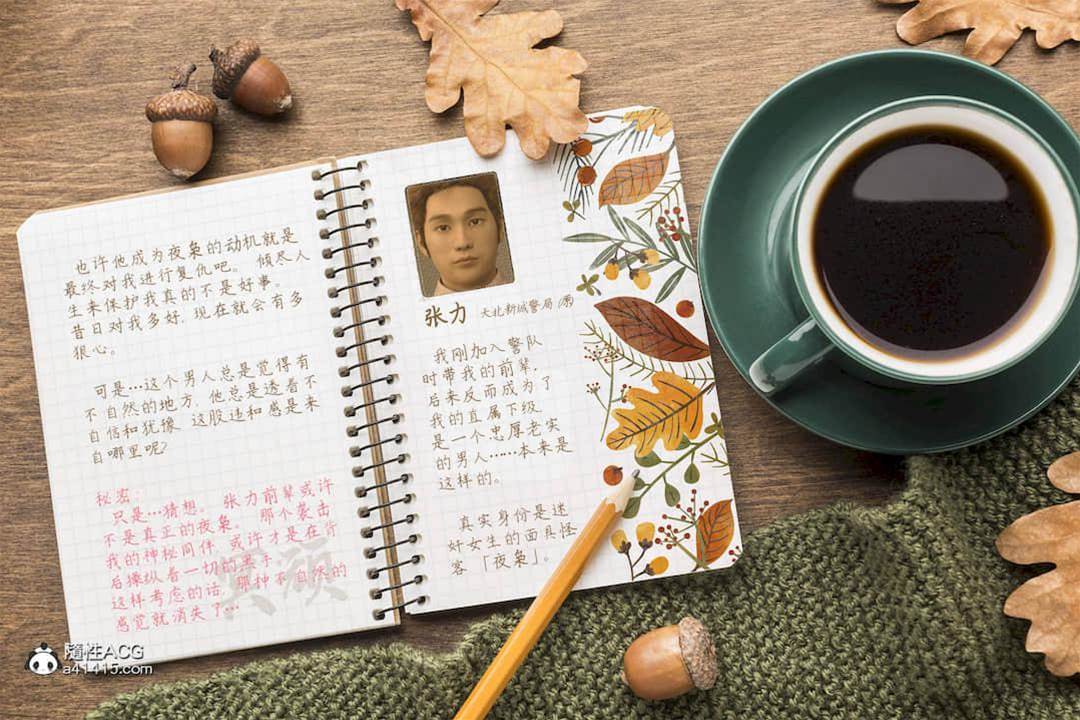 也许他成为夜枭的动机就是
最终对我进行复仇吧。 倾尽人
生来保护我真的不是好事。
昔日对我多好,现在就会有多
狠心。
可是…这个男人总是觉得有
不自然的地方,他总是透着不
自信和犹豫,这股违和感是来
自哪里呢?
秘密：
只是…猜想。 张力前辈或许
不是真正的夜枭。 那个袭击
我的神秘同伴,或许才是在背
后操纵着一切的黑手。
这样考虑的话,那种不自然的
感觉就消失了…
张力 大北新城警局
我刚加入警队
时带我的前辈,
后来反而成为了
我的直属下级
是一个忠厚老实
的男人……本来是
这样的。
真实身份是迷
奸女生的面具怪
客「夜枭」。
隨性ACG
a41415.com